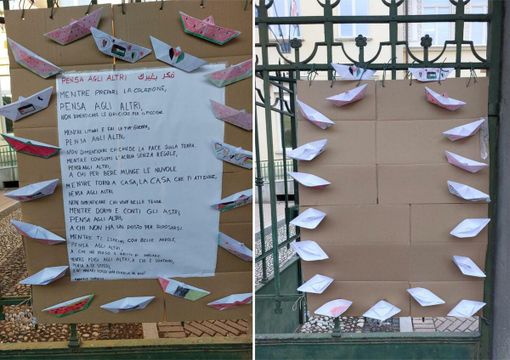 PENSA AGLI ALTRI فكر بغيرك
MENTRE PREPARI LA COLAZIONE,
PENSA AGLI ALTRI,
NON DIMENTICARE
MENTRE FAI LA TUA GUERRA,
PENSA AGLI ALTRI,
NON DIMENTICARE CHI CHIEDE LA PACE SULLA TERRA
MENTRE CONSUMI L'ACQUA SENZA REGOLE,
PENSA AGLI ALTRI,
A CHI PER BERE MUNGE LE NUVOLE
MENTRE TORNI A CASA, LA CASA CHE TI ATTENDE,
PENSA AGLI ALTRI,
NON DIMENTICARE CHI VIVE NELLE TENDE
MENTRE DORMI E CONTI GLI ASTRI,
PENSA AGLI ALTRI,
A CHI NON HA UN POSTO PER RIPOSARSI
MENTRE TI ESPRIMI CON BELLE PAROLE,
PENSA AGLI ALTRI,
A CHI HA PERSO IL DIRITTO DI
MENTRE PENSI AGLI ALTRI, A CHI È LONTANO,
PENSA A TE STESSO,